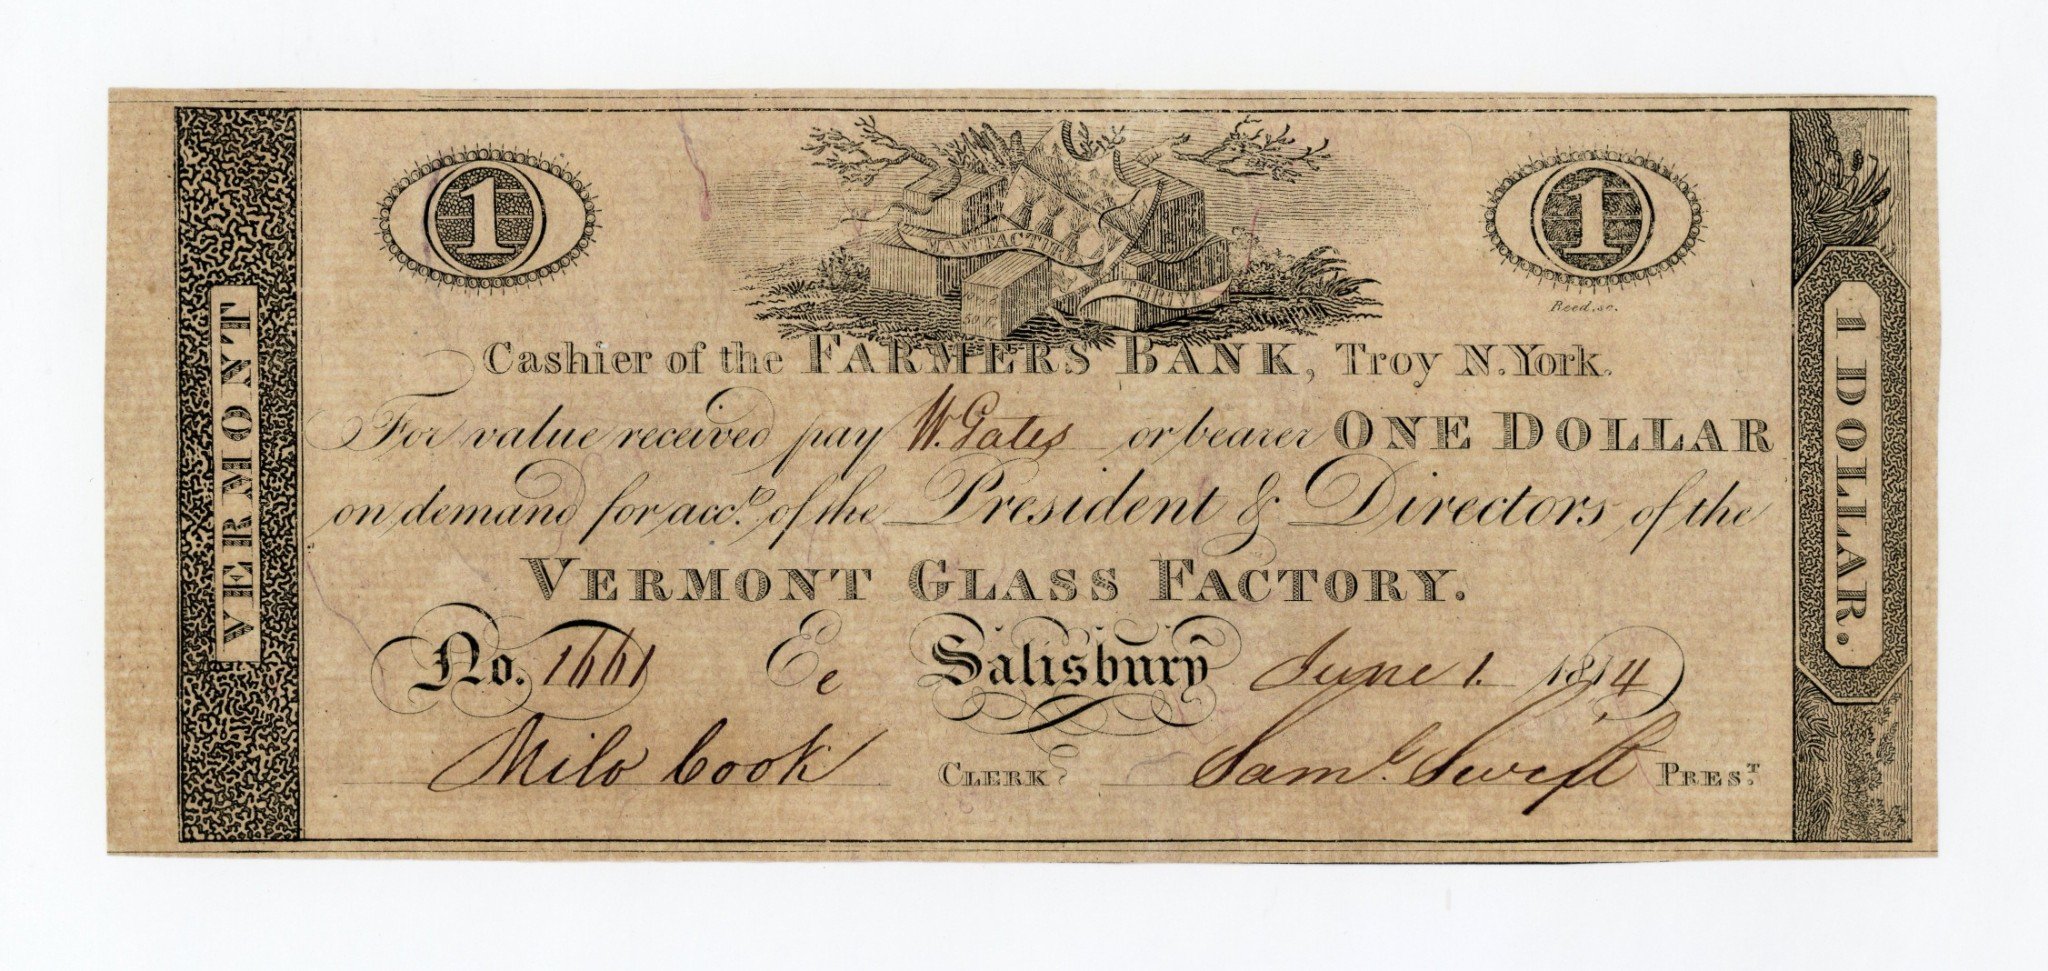 VERMONT
1
1
MANUFACTURE
THRIVE
50 F.
Reed. sc.
Cashier of the FARMERS BANK, Troy N. York.
For value received pay W. Gates or bearer ONE DOLLAR
on demand for acc.t of the President & Directors of the
VERMONT GLASS FACTORY.
No. 1661 Ee Salisbury June 1. 1814
Milo Cook CLERK Saml. Swift PRES.T
1 DOLLAR.